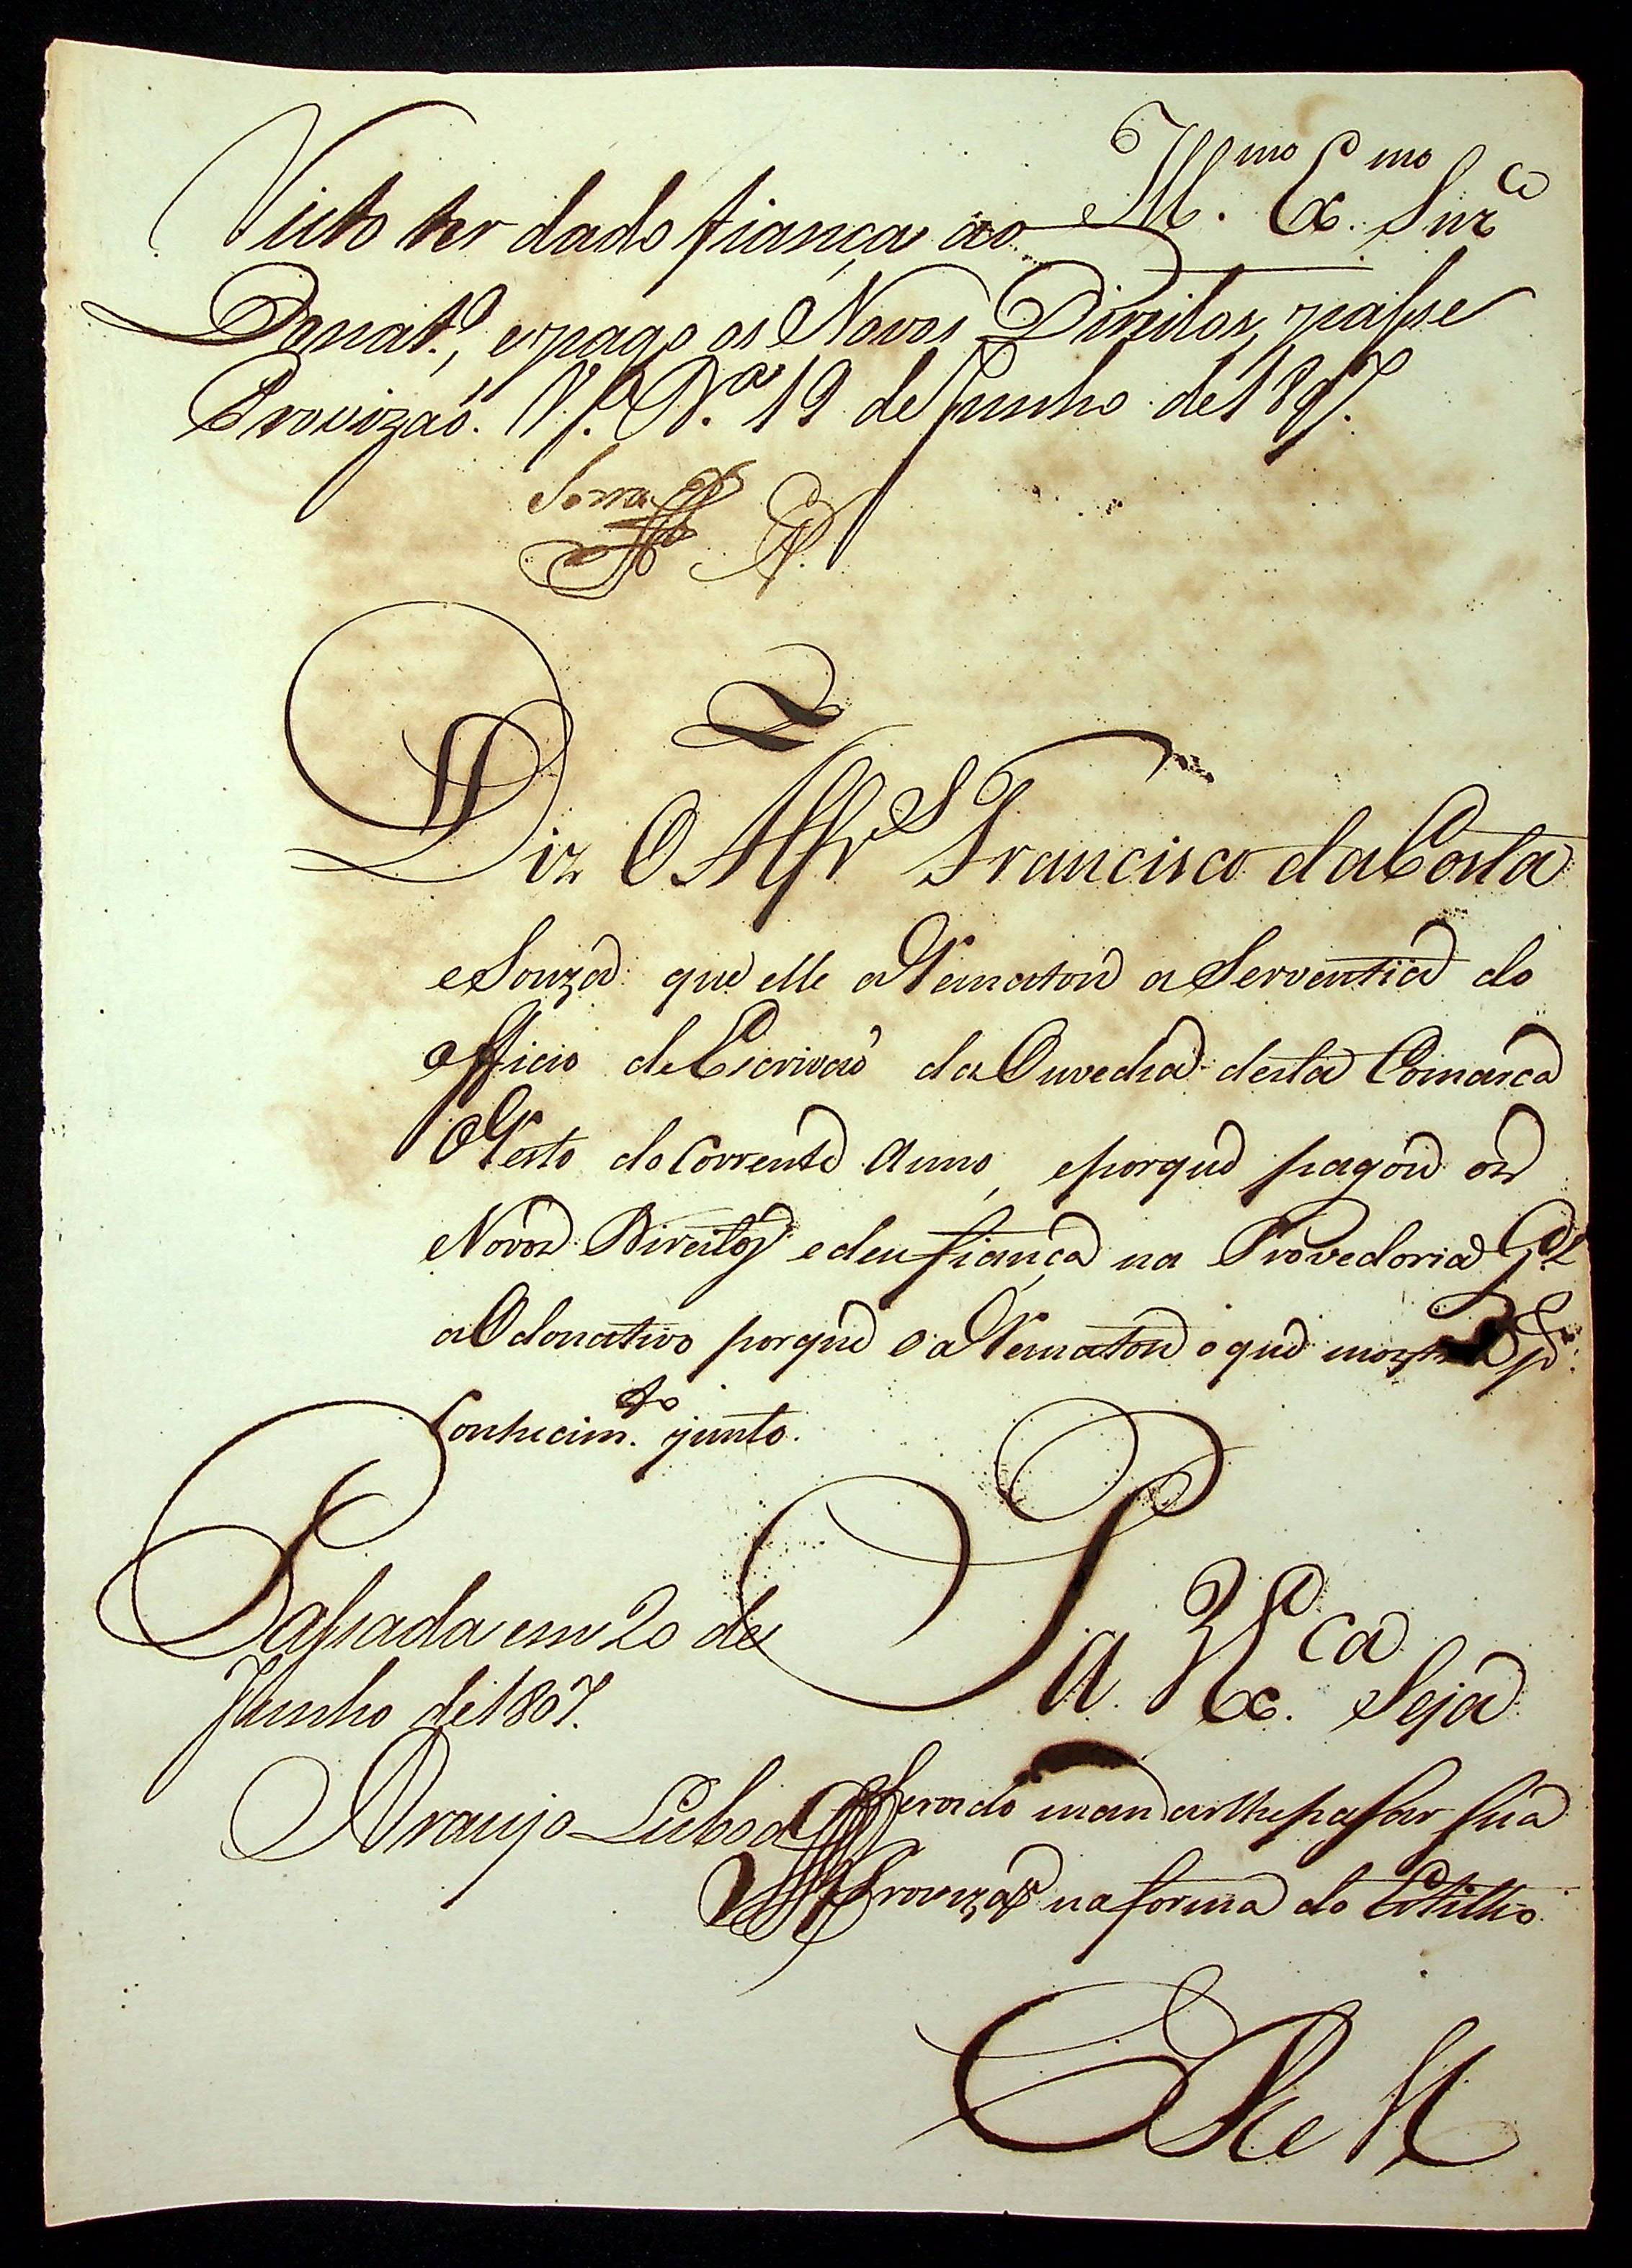 Ill.mo Ex.mo Snr.
Visto ter dado fiança ao
Donat.o, e pago os Novos Direitos, passe
Provizaõ. V.a R.a 19 de Junho de 1807.
Diz O Alfr.s Francisco da Costa
e Souza que elle aRematou a Serventia do
officio de Escrivaõ da Ouvedria desta Comarca
o Resto do Corrente Anno, eporque pagou os
Novos Direitos e deu fiança na Provedoria G.al
aO donativo porque o aRematou o que mostra p.r
Conhecim.to junto.
P a V Ex.ca Seja
Servido mandarlhe passar Sua
Provizaõ na forma do Estillo
Passada em 20 de
Junho de 1807.
Araujo Lisboa
E R M